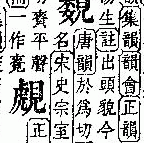 集韻韻會正韻
生註出頭貌今
覣
唐韻於爲切
名宋史宗室
正
齊平聲
一作寬